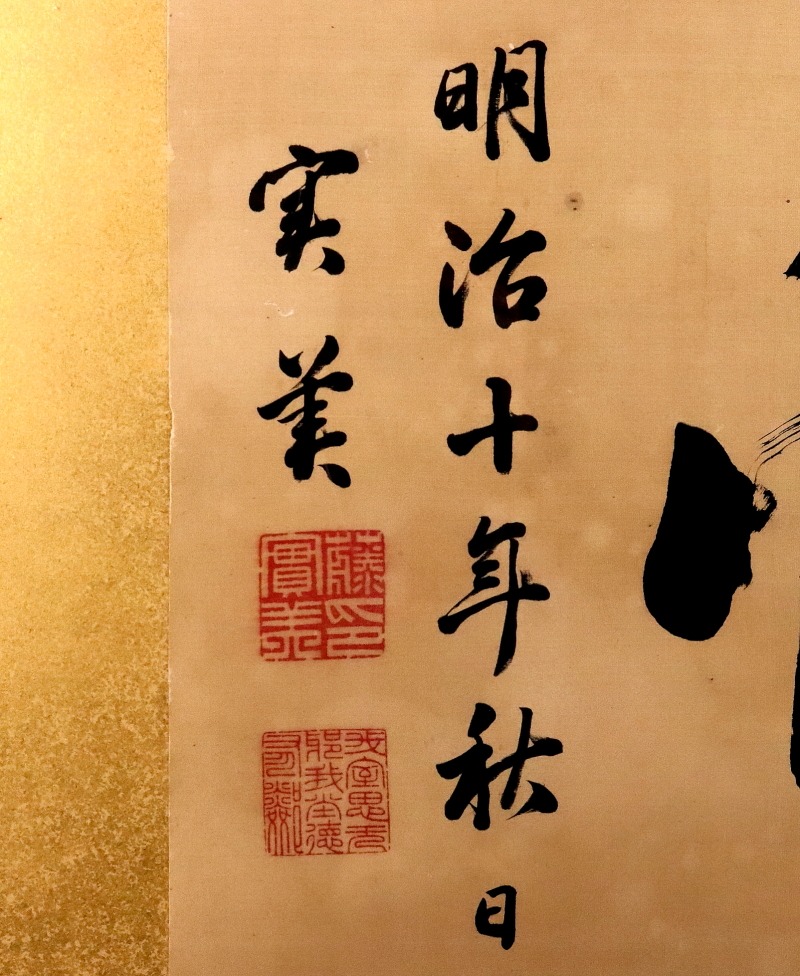 明治十年秋日
実美
藤印
實美